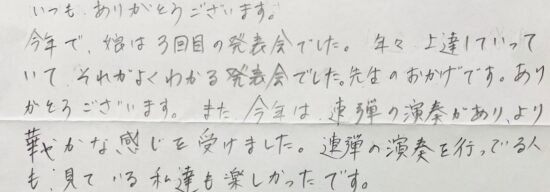 いつも、ありがとうございます。
今年で、娘は3回目の発表会でした。年々、上達していって
いて、それがよくわかる発表会でした。先生のおかげです。あり
がとうございます。また、今年は、連弾の演奏があり、より
華やかな感じを受けました。連弾の演奏を行っている人
も、見ている私達も楽しかったです。